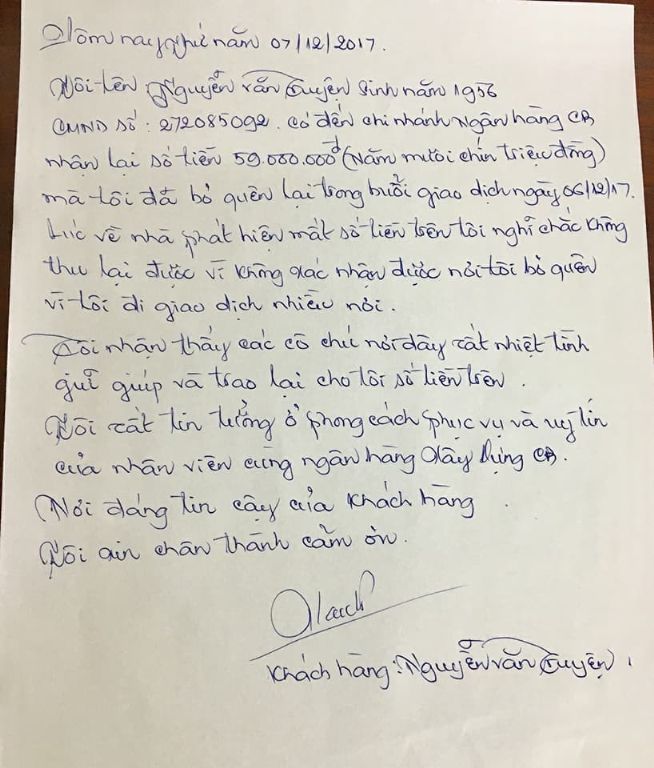 Hôm nay, thứ năm 07/12/2017.
Tôi tên Nguyễn Văn Tuyện Sinh năm 1956
CMND số: 272085092. Có đến chi nhánh Ngân hàng CB
nhận lại số tiền 59.000.000đ (Năm mươi chín triệu đồng)
mà tôi đã bỏ quên lại trong buổi giao dịch ngày 06/12/17.
Lúc về nhà phát hiện mất số tiền trên tôi nghĩ chắc không
thu lại được vì không xác nhận được nơi tôi bỏ quên
vì tôi đi giao dịch nhiều nơi.
Tôi nhận thấy các cô chú nơi đây rất nhiệt tình
gửi giúp và trao lại cho tôi số tiền trên.
Tôi rất tin tưởng ở phong cách phục vụ và uy tín
của nhân viên cùng ngân hàng Xây Dựng CB.
Nơi đáng tin cậy của khách hàng
Tôi xin chân thành cảm ơn.
Khách hàng: Nguyễn Văn Tuyện